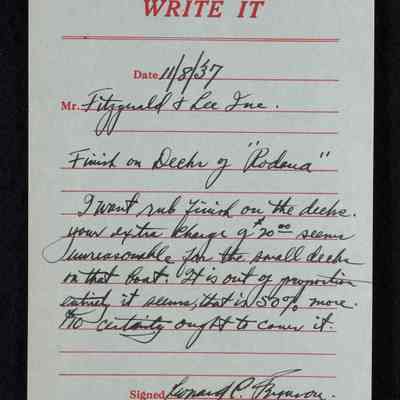 WRITE IT
Date 11/8/37
Mr. Fitzgerald & Lee Inc.
Finish on Decks of "Rodana"
I want rub finish on the decks.
your extra charge of $20.00 seems
unreasonable for the small decks
on that boat. It is out of proportion
entirely it seems, that is 50% more.
$10 certainly ought to cover it.
Signed Leonard C.